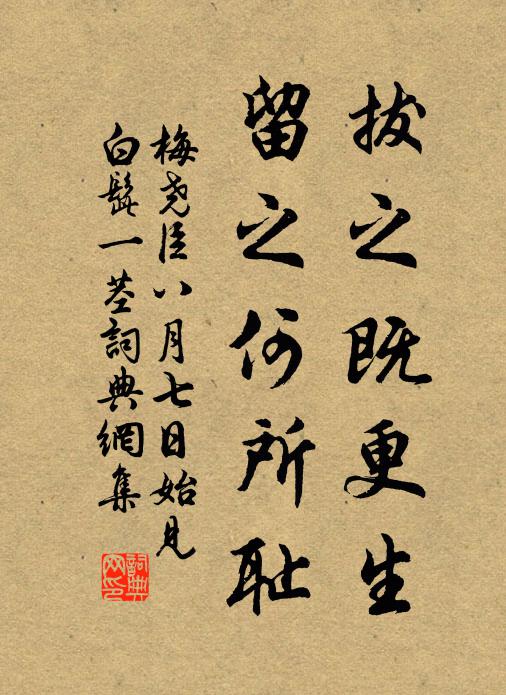 拔之既更生
留之何所耻
梅尧臣八月七日始見
白髭一茎詞典網集
詞典网印